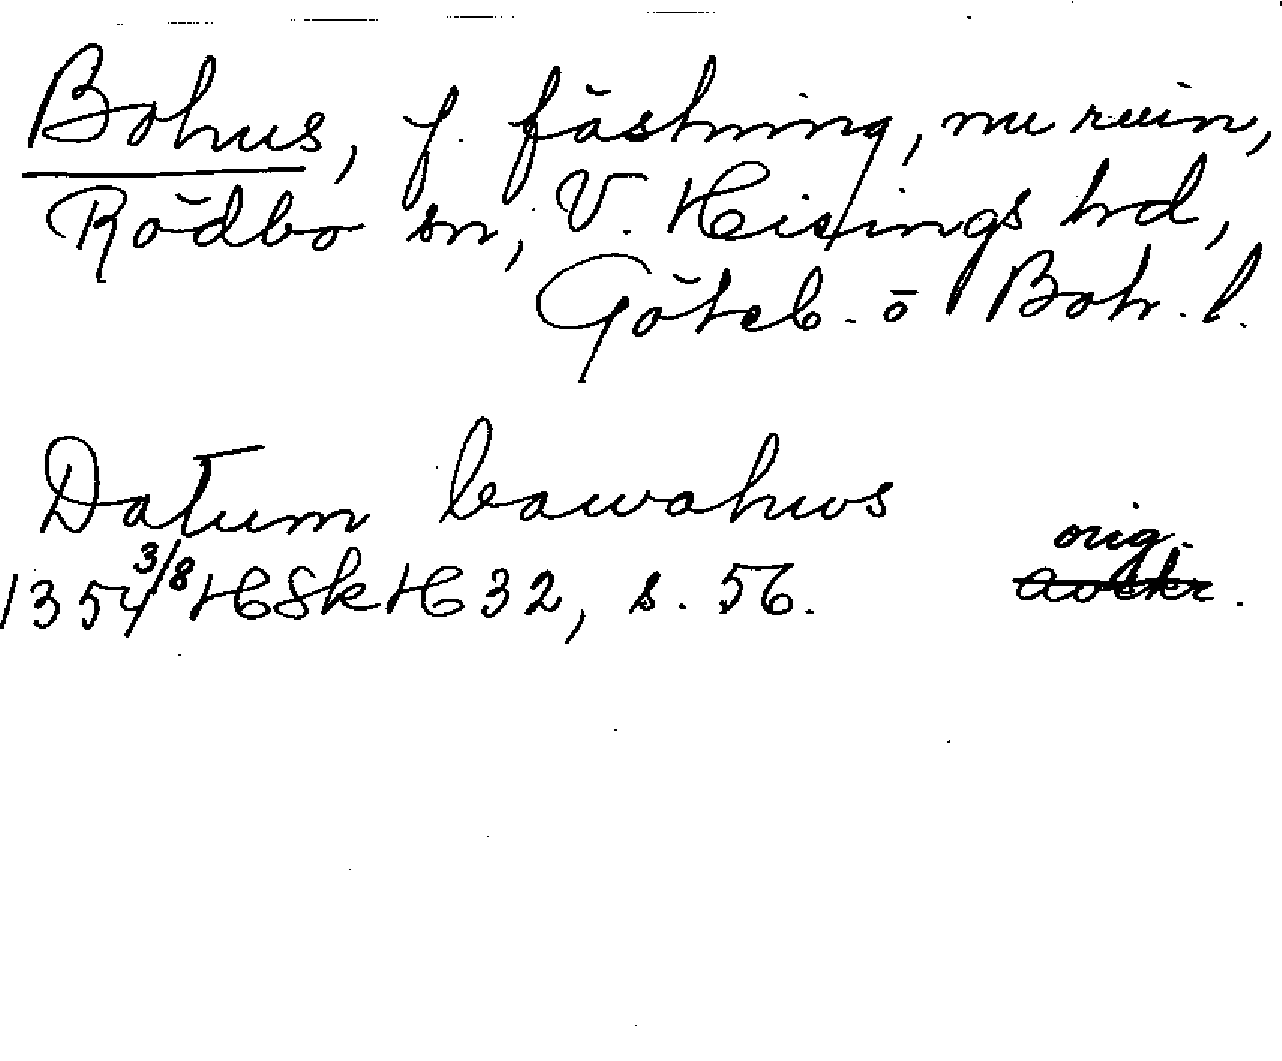 Bohus, f. fästning, nu ruin,
Rödbo sn, V. Hisings hrd,
Göteb. o Boh. l.
Datum bawahws
1354 3/8 HSkH 32, s. 56.
orig.